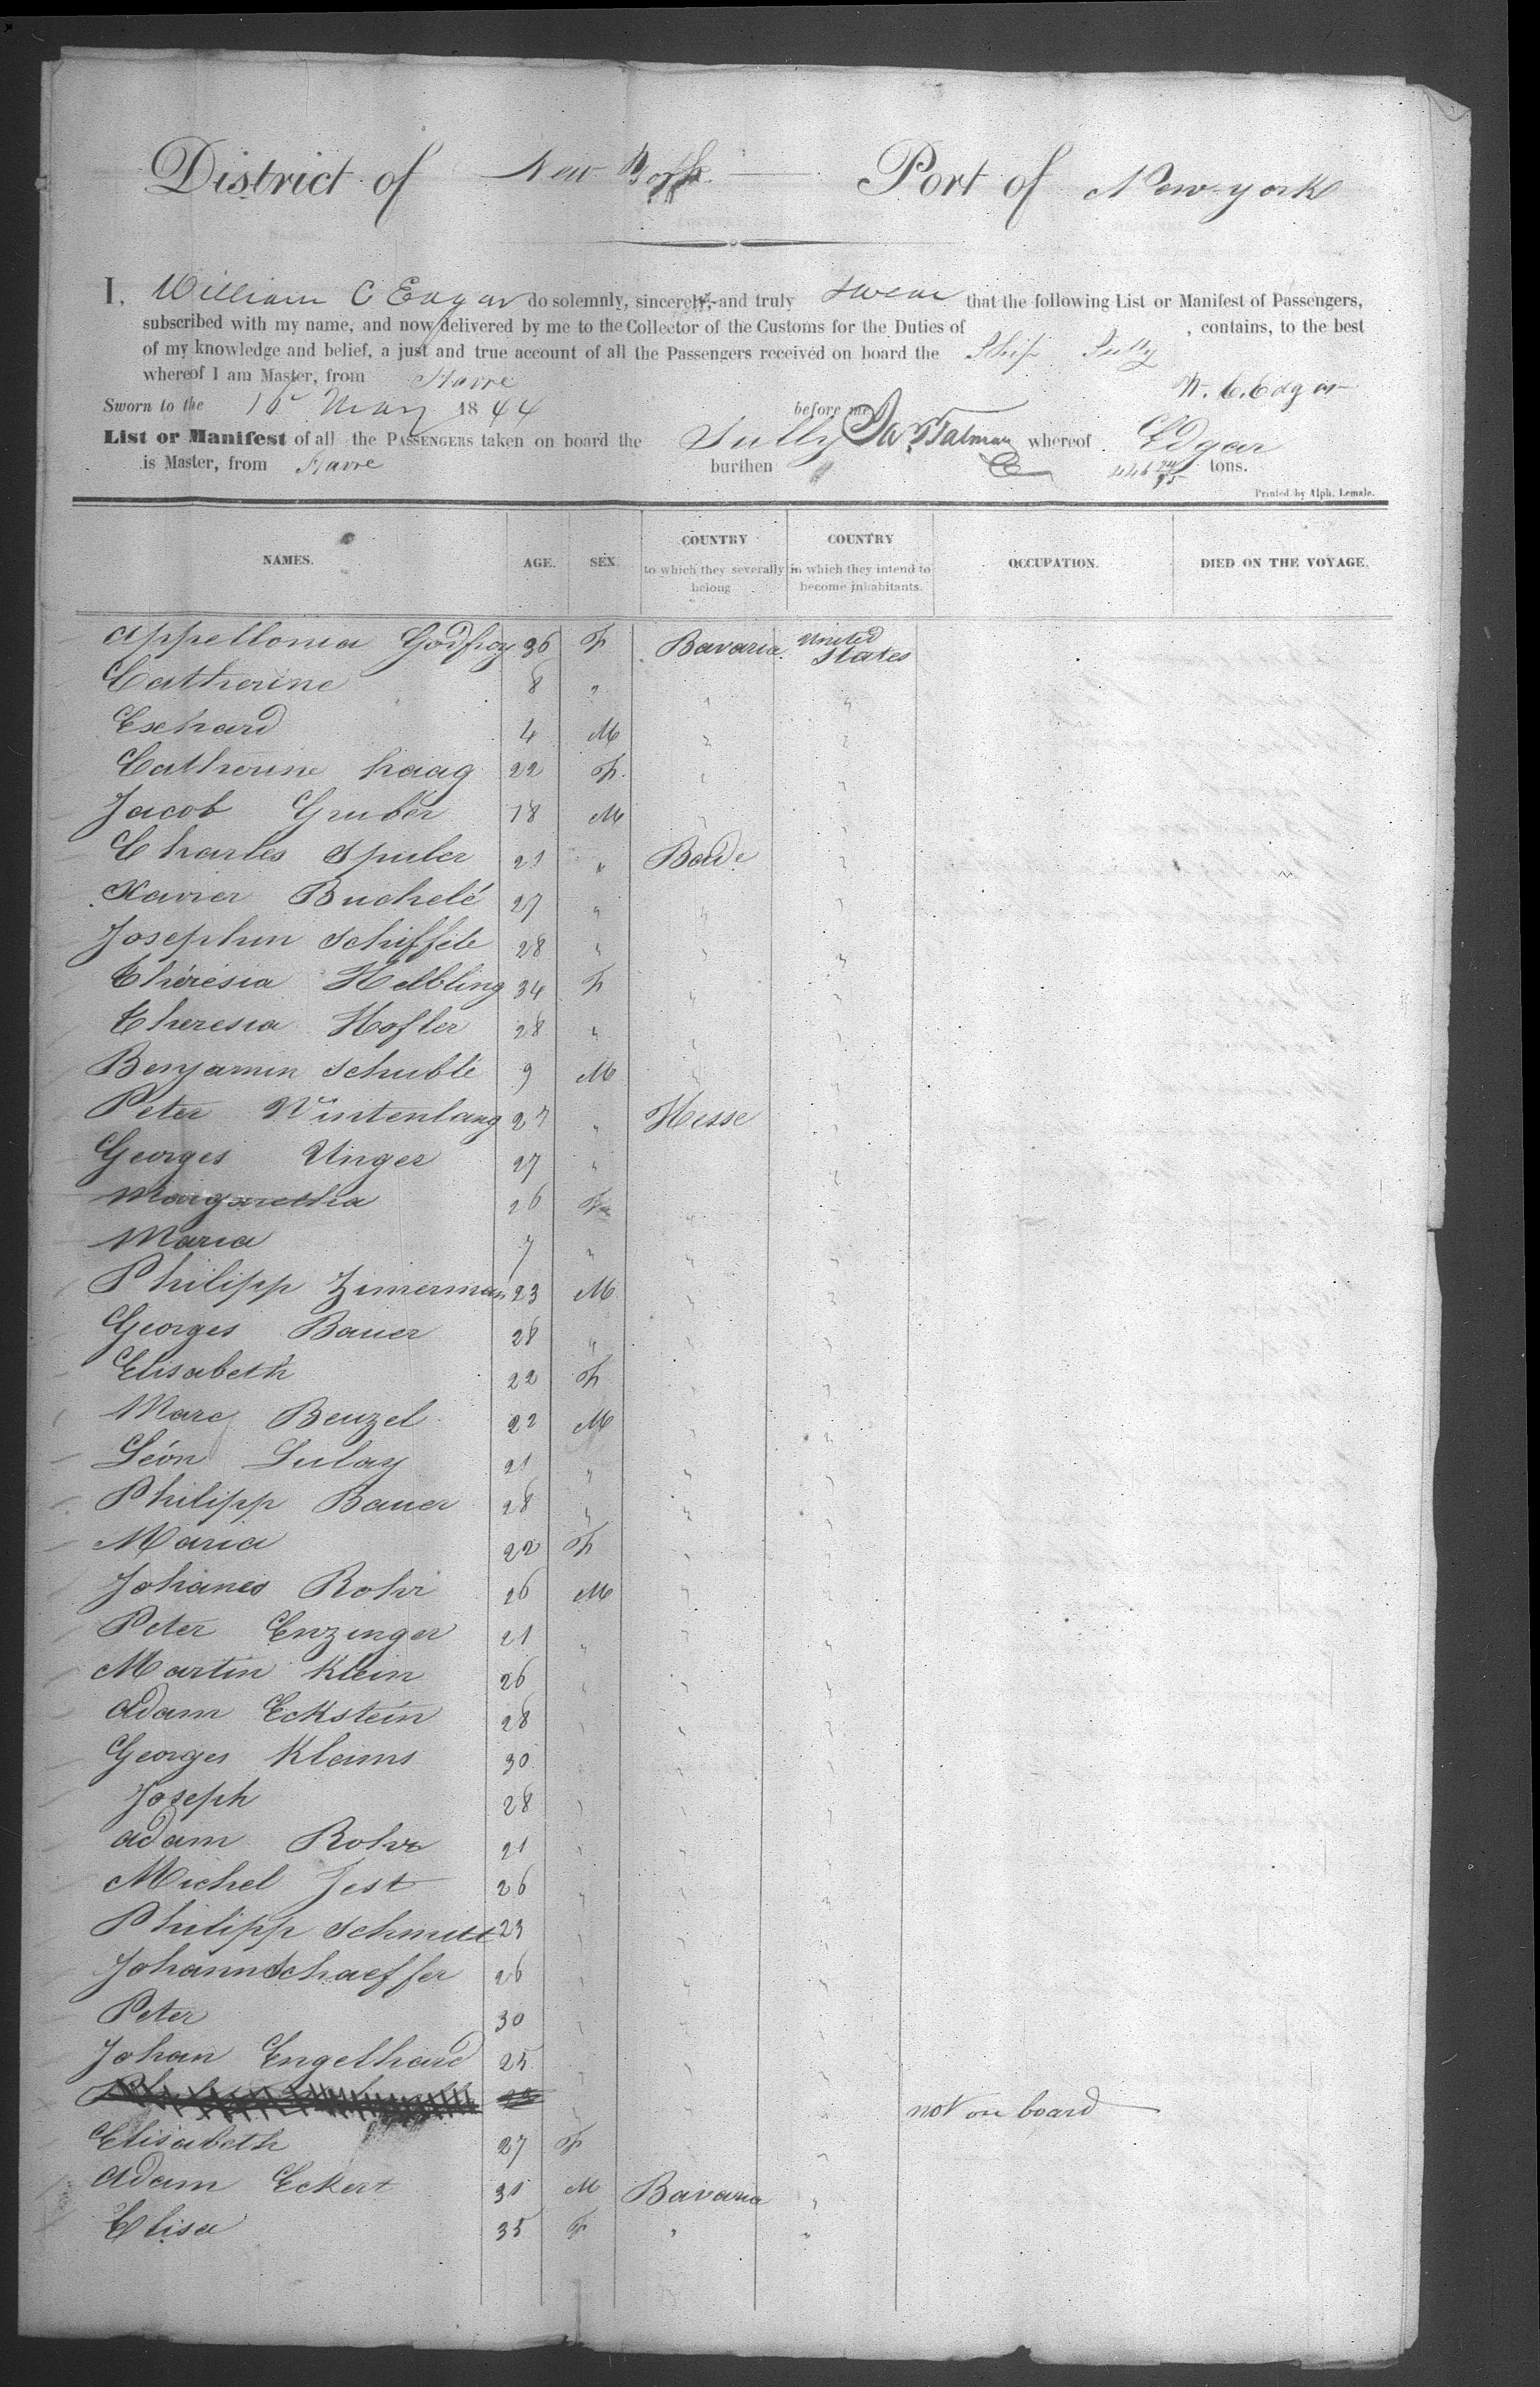 District of New York Port of New-york
I, William C Edgar do solemnly, sincerely, and truly swear that the following List or Manifest of Passengers,
subscribed with my name, and now delivered by me to the Collector of the Customs for the Duties of , contains, to the best
of my knowledge and belief, a just and true account of all the Passengers received on board the Ship Sully
whereof I am Master, from Havre
W. C. Edgar
Sworn to the 16 May 1844 before me
List or Manifest of all the PASSENGERS taken on board the Sully whereof Edgar
is Master, from Havre burthen 446 24/95 tons.
Printed by Alph. Lemale.
NAMES. AGE. SEX COUNTRY to which they severally belong COUNTRY in which they intend to become inhabitants. OCCUPATION. DIED ON THE VOYAGE.
Appellonia Godfroy 36 F Bavaria United States
Catherine 8 " " "
Exhard 4 M " "
Catherine haag 22 F. " "
Jacob Gruber 18 M " "
Charles Spuler 21 " Bade "
Xavier Buchelé 27 " " "
Josephin Schiffele 28 " " "
Thérésia Helbling 34 F " "
Theresia Hofler 28 " " "
Benjamin Schublé 9 M " "
Peter Wintenlang 27 " Hesse "
Georges Unger 27 " "
Margaretha 26 F " "
Maria 7 " " "
Philipp Zimerman 23 M " "
Georges Bauer 28 " " "
Elisabeth 22 F " "
Marc Beuzel 22 M " "
Léon Lulay 21 " " "
Philipp Bauer 28 " " "
Maria 22 F " "
Johanes Rohr 26 M " "
Peter Enzinger 21 " " "
Martin Klein 26 " " "
Adam Eckstein 28 " " "
Georges Klams 30 " " "
Joseph 28 " " "
Adam Rohr 21 " " "
Michel Jest 26 " " "
Philipp Schmitt 23 " " "
Johann Schaeffer 26 " " "
Peter 30 " " "
Johan Engelhard 25 " " "
" " not on board
Elisabeth 27 F "
Adam Eckert 31 M Bavaria "
Elisa 35 F " "